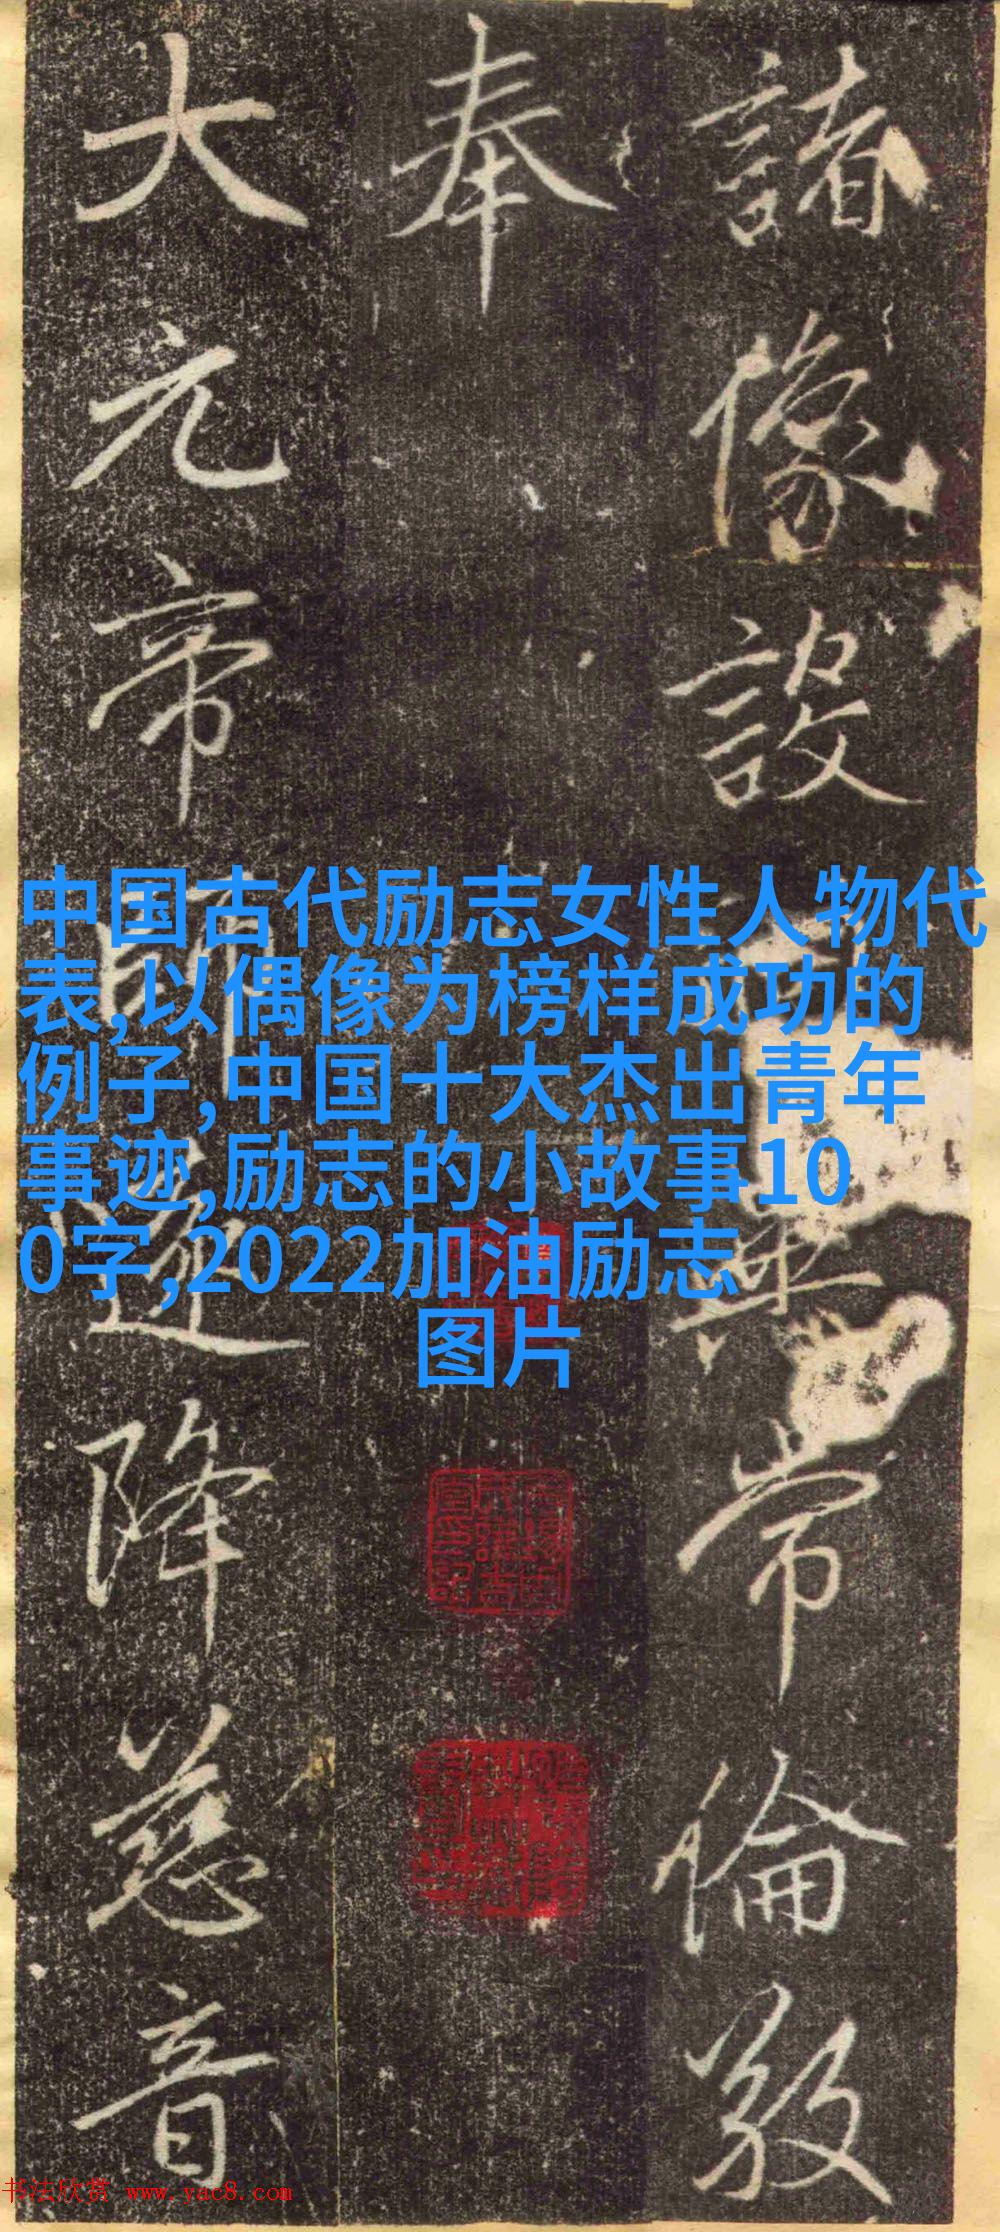 諸像設
常倫敬
奉
大元帝師
遂降慈音
中国古代励志女性人物代
表,以偶像为榜样成功的
例子,中国十大杰出青年
事迹,励志的小故事10
0字,2022加油励志
图片
书法欣赏 www.yac8.com